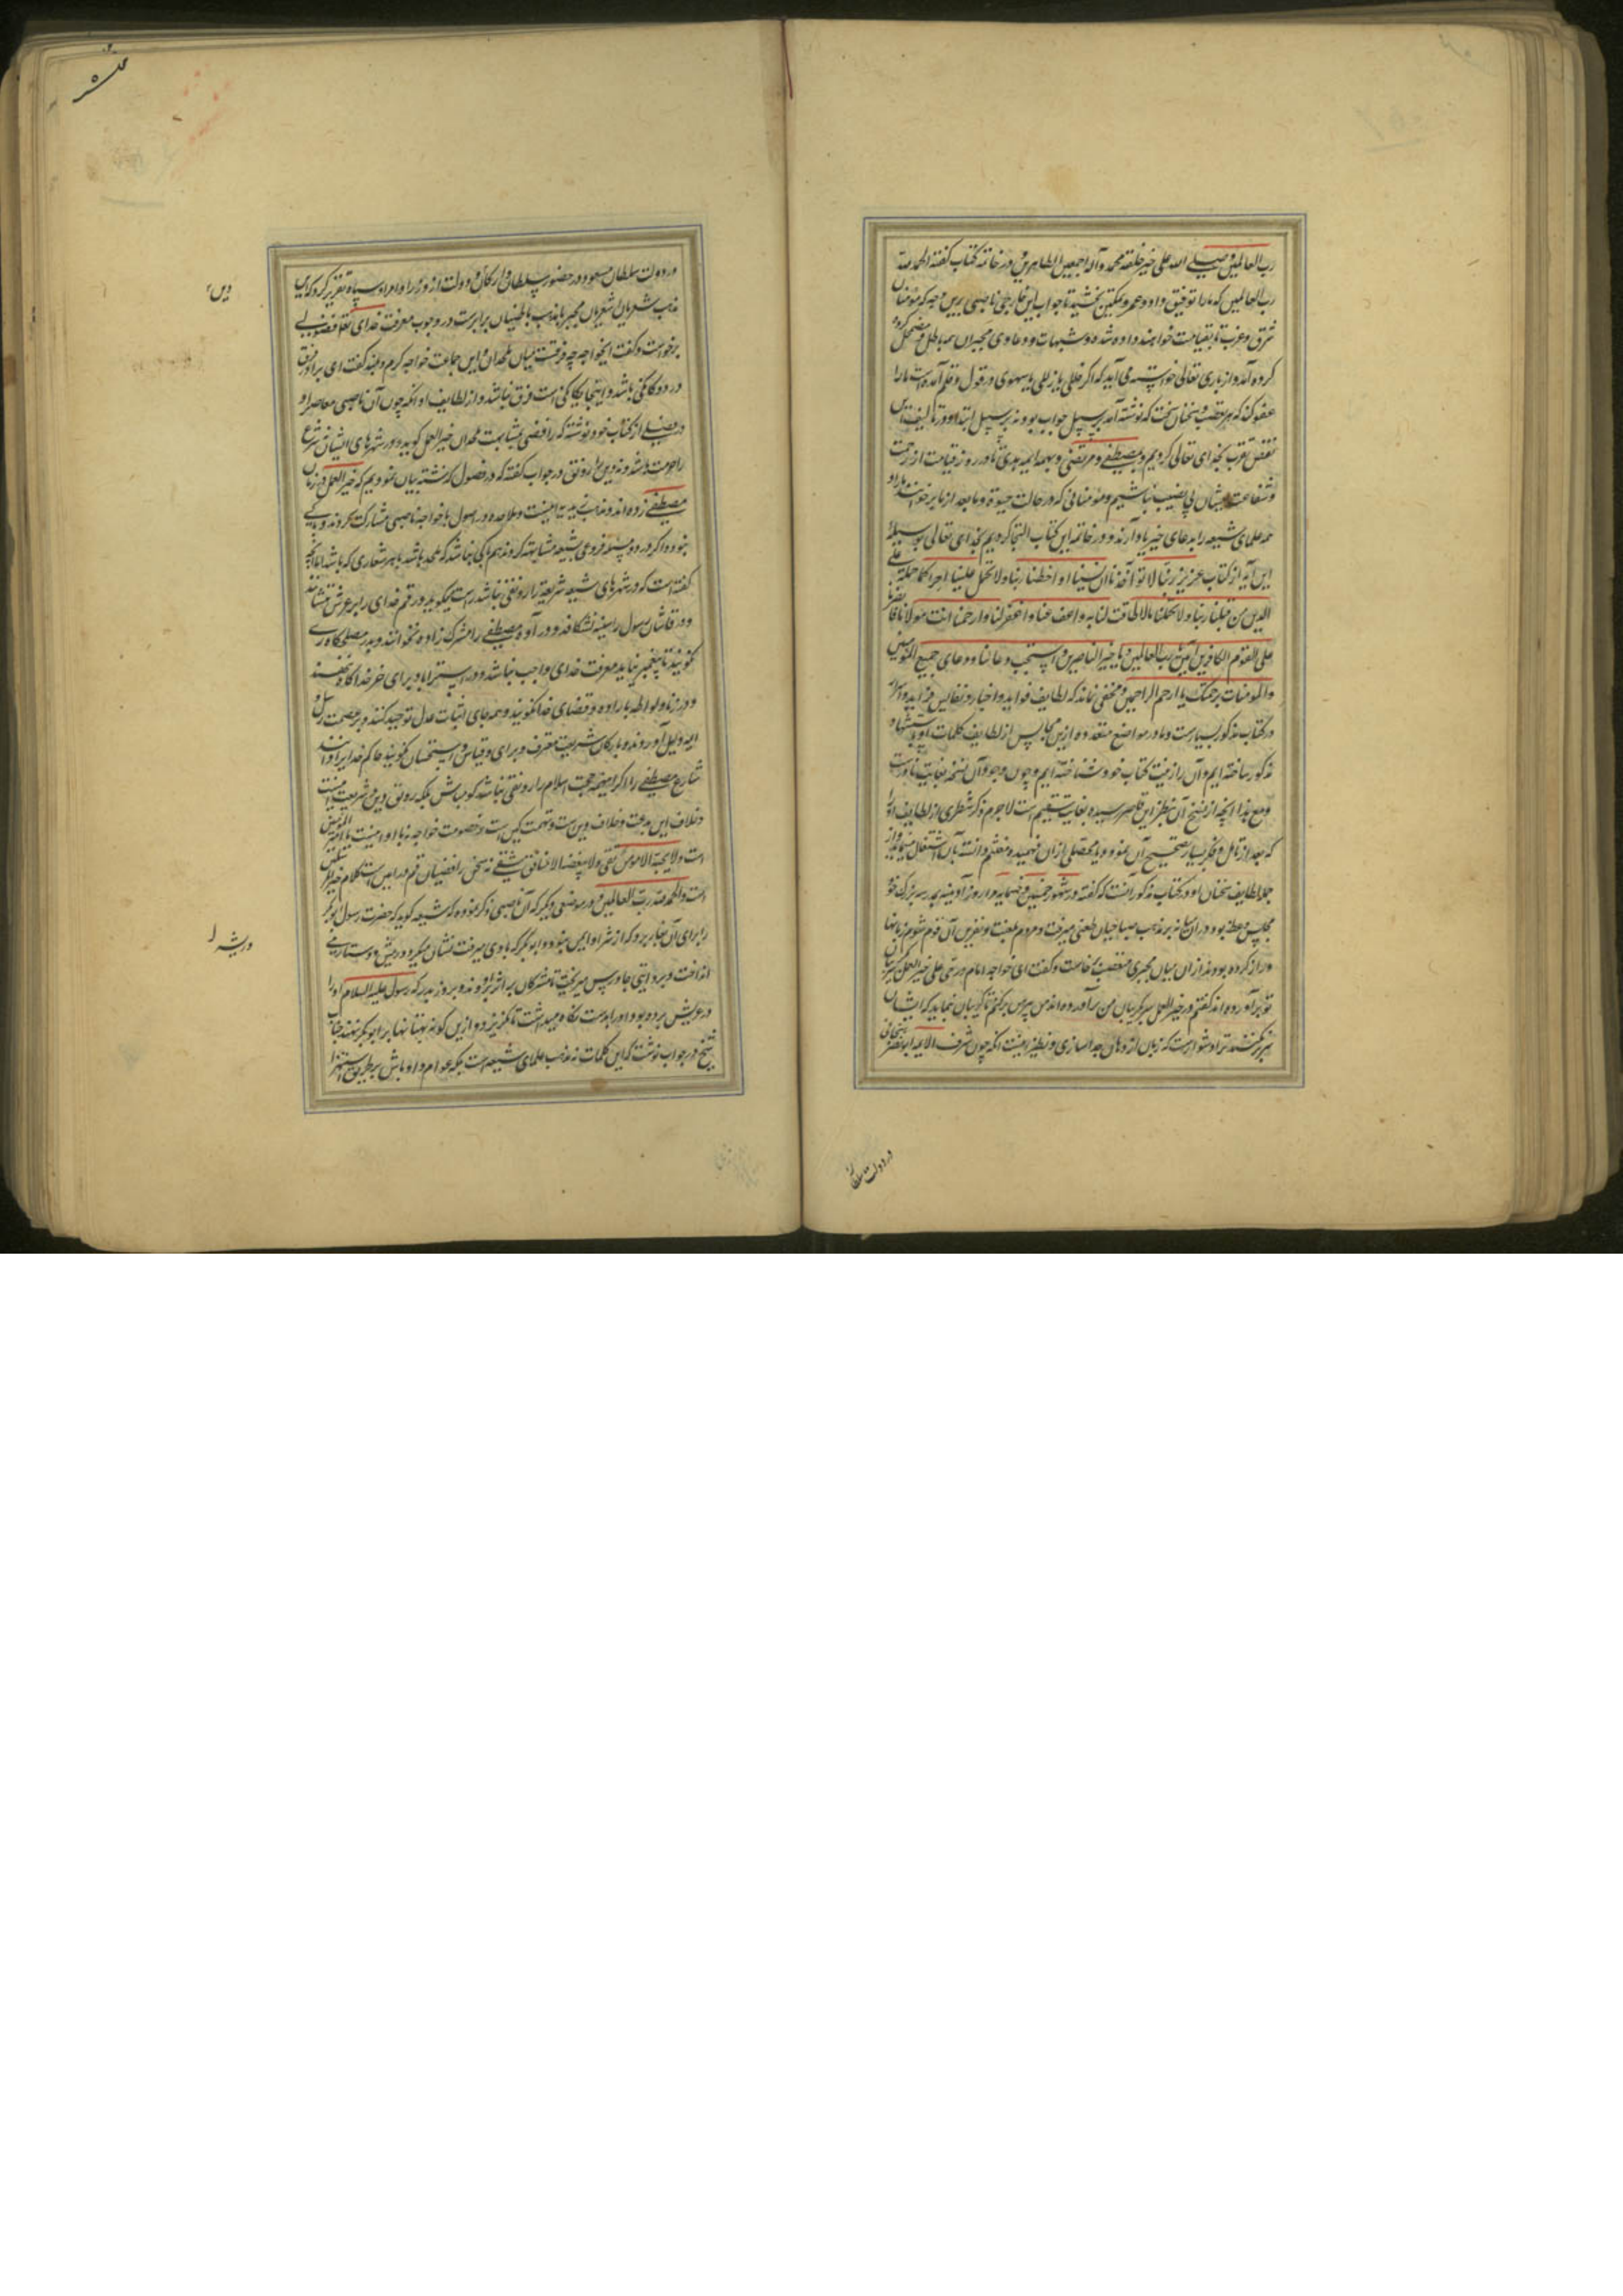 رب العالمین و صلی الله علی خیر خلقه محمد و آله اجمعین الطاهرین و در خاتمه کتاب گفته الحمد لله
رب العالمین که ما را توفیق داد و عمر و تمکین بخشید تا جواب این خارجی ناصبی برین وجه که مؤمنان
شرق و غرب تا بقیامت خواهند داده شد و شبهات و دعاوی مجبران همه باطل و مضمحل کرده
کرده آمد و از باری تعالی خواسته می آید که اگر خللی یا زللی یا سهوی در قول و قلم آمده است ما را
عفو کند که هر تعصب و سخنان سخت که نوشته آمد بر سبیل جواب بود نه بر سبیل ابتدا و در تالیف این
نقض تقرب بخدای تعالی کردیم و بمصطفی و مرتضی و بهمه ایمه هدی تا در روز قیامت از رحمت
و شفاعت ایشان بی نصیب نباشیم و مؤمنانی که در حالت حیوة و ما بعد از ما برخوانند ما را و
همه علمای شیعه را بدعای خیر یاد آرند و در خاتمه این کتاب التجا کردیم بخدای تعالی بوسیلهٔ
این آیه از کتاب عزیز ربنا لا تؤاخذنا ان نسینا او اخطنا ربنا و لا تحمل علینا اصرا کما حملته علی
الذین من قبلنا ربنا و لا تحملنا ما لا طاقت لنا به و اعف عنا و اغفر لنا و ارحمنا انت مولانا فانصرنا
علی القوم الکافرین آمین رب العالمین و یا خیر الناصرین و استجب دعائنا و دعای جمیع المؤمنین
و المؤمنات برحمتک یا ارحم الراحمین و مخفی نماند که لطایف فواید و اخبار و نفایس فراید و آثار
در کتاب مذکور بسیارست و ما در مواضع متعدده ازین مجالس از لطایف کلمات او باستشهاد
مذکور ساخته ایم و آن را زینت کتاب خود شناخته ایم و چون وجود آن نسخه بغایت نادرست
و مع هذا آنچه از نسخ آن بنظر این قاصر رسیده بغایت سقیم است لاجرم ذکر شطری از لطایف او را
که بعد از تامل و فکر بسیار تصحیح آن نمود و یا محصلی از آن فهمیده مغتنم دانسته بآن اشتغال مینماید و از
جمله لطایف سخنان او در کتاب مذکور آنست که گفته در شهور خمسین و خمسمایه ما را روز آدینه بمدرسه بزرک خود
مجلس وعظ بود در آن میانه بر مذهب صباحیان طعنی میرفت و مردم بلعنت و نفرین آن قوم شوم زبانها
دراز کرده بودند از آن میان مجبری متعصب برخاست و گفت ای خواجه امام در حی علی خیر العمل گریبان
تو برآورده اند گفتم در خیر العمل سر بگریبان من برآورده اند من پیرهن برکنم تا گریبان نماید که ایشان
سر برکشند ترا دشوارست که زبان از دهان جدا سازی و نظیر اینست آنکه چون شرف الایمه ابو نصر هسنجانی
در دولت سلطا
در دولت سلطان مسعود در حضور سلطان و ارکان دولت از وزرا و امرا و سپاه تقریر کرد که این
مذهب شعریان اشعریان مجبر با مذهب باطنیان برابرست در وجوب معرفت خدای تعالی فضولی
برخواست و گفت ای خواجه چه فرقست میان ملحدان و این جماعت خواجه گرم و بلند گفت ای برادر فرق
در دوگانگی باشد و اینجا یگانگی است فرق نباشد و از لطایف او آنکه چون آن ناصبی معاصر او
در فصلی از کتاب خود نوشته که رافضی بمشابهت ملحدان خیر العمل گوید و در شهرهای ایشان شرع
را حرمت نباشد و نه دین را رونق در جواب گفته که در فصول گذشته بیان نمودیم که خیر العمل در زمان
مصطفی زده اند و مذهب زیدیه اینست و ملاحده در اصول با خواجه ناصبی مشارکت کردند و باکی
نبود و اگر در دو مسئله فروعی بشیعه مشابهت کردند هم باکی نباشد که ملحد باشد بهر شعاری که باشد اما آنچه
گفته است که در شهرهای شیعه شریعة را رونقی نباشد راست میگوید در قم خدای را بر عرش ننشانند
و در قاشان رسول را سینه نشکافند و در آوه مصطفی را مشرک زاده نخوانند و بدر مصلحگاه ری
نگویند تا پیغمبر نیاید معرفت خدای واجب نباشد و در استراباد برای خر خدا کاه ننهند
و در زنا و لواطه باراده و قضای خدا نگویند و همه جای اثبات عدل و توحید کنند و بر عصمت رسل و
ایمه دلیل آورند و بارکان شریعت معترف و برای و قیاس و استحسان نگویند حاکم خدا را دانند
شارع مصطفی را اگر این همه حجت اسلام را رونقی نباشد گو مباش بلکه رونق دین و شریعت اینست
و خلاف این بدعت و خلاف دین است و تهمت کین است و خصومت خواجه نه با او اینست با امیر المؤمنین
است و لا یحبه الا مومن تقی و لا یبغضه الا منافق شقی نه سخن رافضیان قم و درامین است کلام خیر المرسلین
است و الحمد لله رب العالمین و در موضعی دیگر که آن ناصبی ذکر نموده که شیعه گوید که حضرت رسول ابو بکر
را برای آن بغار برد که از شر او ایمن نبود و ابو بکر که با وی میرفت نشان میکرد و درمیش و ستارمی
انداخت و بروایتی جاورس میریخت تا مشرکان بر اثر بروند و بروز بدر که رسول علیه السلام او را
در عریش برده بود او را بدست نگاه میداشت تا نگریزد و ازین گونه بهتانها بر ابو بکر نهند جناب
شیخ در جواب نوشت که این کلمات نه مذهب علمای شیعه است بلکه عوام و اوباش بر طریق استهزا